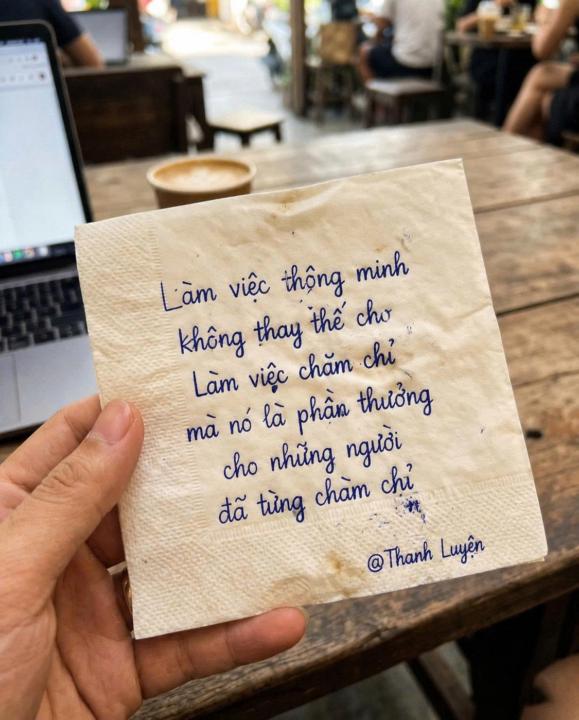 Làm việc thông minh
không thay thế cho
Làm việc chăm chỉ
mà nó là phần thưởng
cho những người
đã từng chàm chỉ
@Thanh Luyện